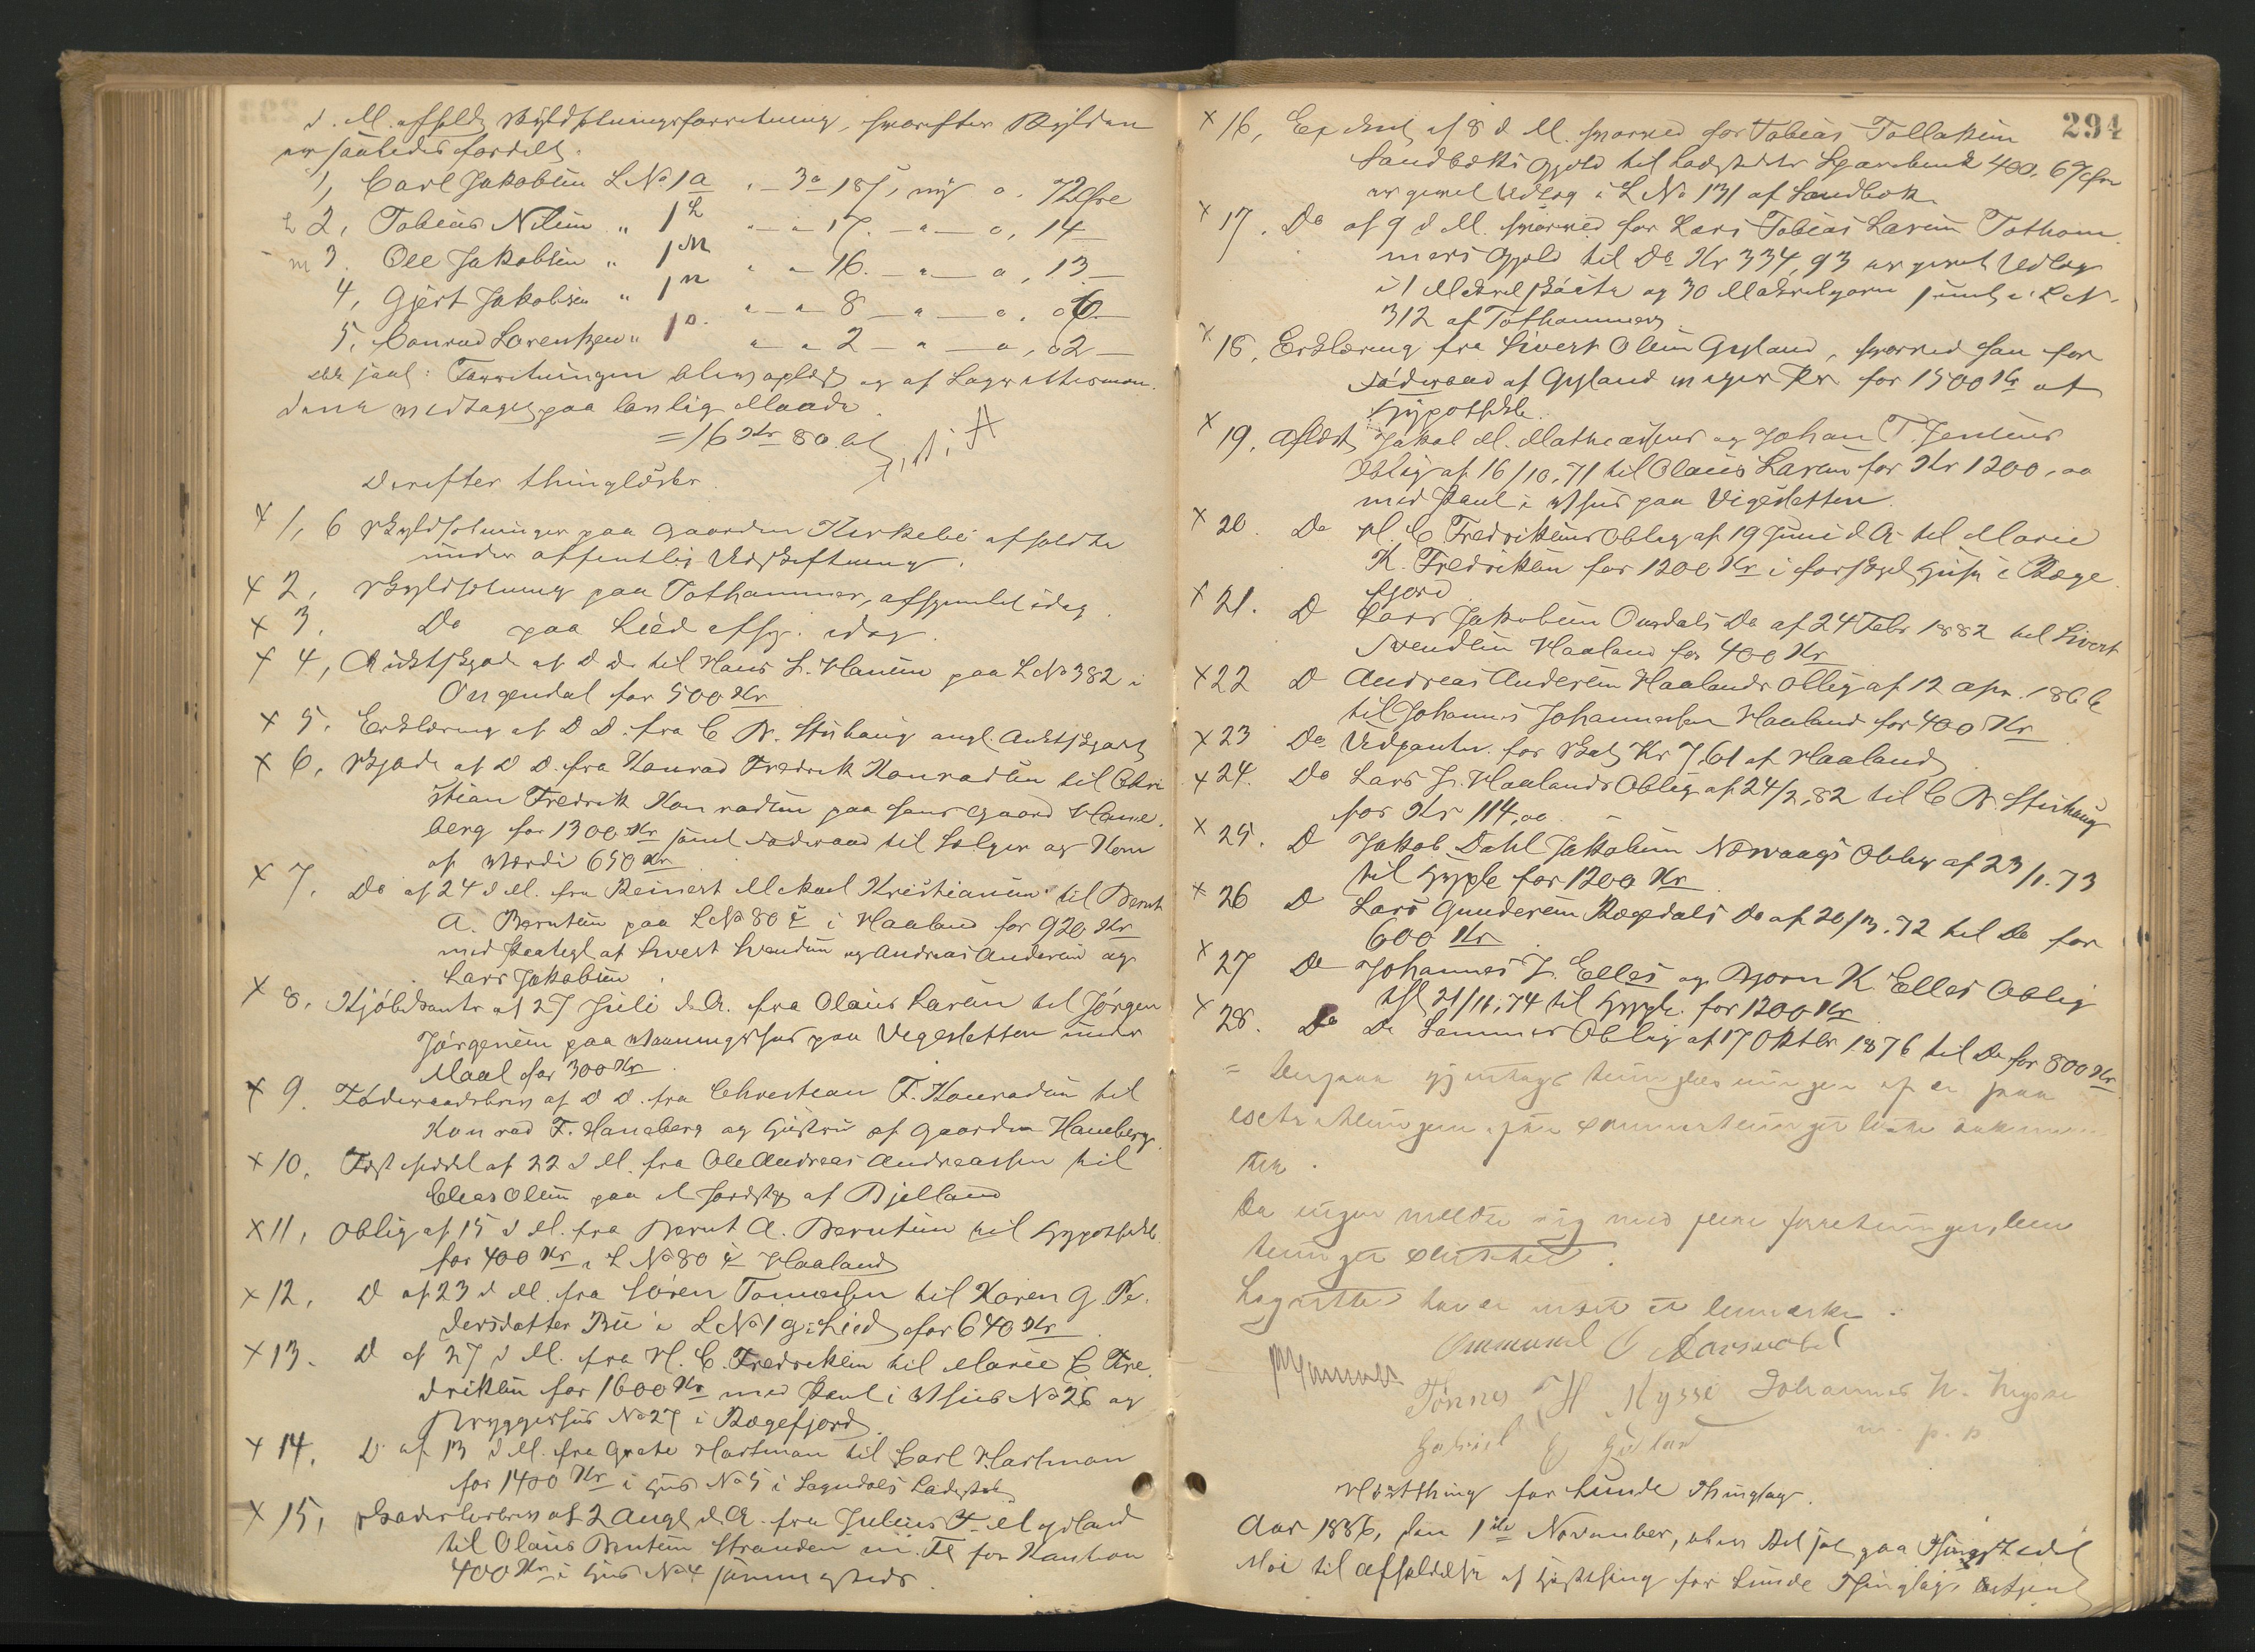 d. M. afholdt Skyldsætningsforretning, hvorefter Skylden
er saaledes fordelt:
1, Carl Jakobsen LNo 1a " - 3 a 187, ny a. 72 Øre
h 2, Tobias Nilsen " 1h " - " 17. - " - a, 14 -
m 3. Ole Jakobsen " 1m " - " 16. - " - a, 13 -
4, Gjert Jakobsen " 1n " - " 8 - " - a. 06 -
5, Conrad Lorentzen " 1o. " - " 2 - " - a, 02 -
Forretningen blev oplæst og af Lagrettesmæn-
dene vedtaget paa lovlig Maade.
= 16 Kr 80.
Derefter thinglæstes.
x 1, 6 Skyldsætninger paa Gaarden Kirkebø afholdte
under offentlig Udskiftning.
x 2, Skyldsætning paa Tothammer, afhjemlet idag.
x 3. Do paa Lied afhj. idag.
x 4, Auktskjøde af D D. til Hans L. Hansen paa LNo 382 i
Ougendal for 500 Kr
x 5. Erklæring af D D. fra C B. Stuhaug angl. Auktskjødet
x 6. Skjøde af D D. fra Konrad Fredrik Konradsen til Chri
stian Fredrik Konradsen paa hans Gaard Hane-
berg for 1300 Kr samt Føderaad til Sælger og Kone
af Værdi 650 Kr
x 7. Do af 24 d M. fra Reinert Mikael Kristiansen til Bernt
A. Berntsen paa LNo 80 i Haaland for 920 Kr
med Paategl af Sivert Svendsen og Andreas Andersen og
Lars Jakobsen.
x 8. Kjøbekontr af 27 Juli d. A. fra Olaus Larsen til Jørgen
Jørgensen paa Vaaningshus paa Vigesletten under
Maal for 300 Kr.
x 9. Føderaadsbrev af D D. fra Christian F. Konradsen til
Konrad F. Haneberg og Hustru af Gaarden Haneberg.
x 10. Fæstesedel af 22 d M. fra Ole Andreas Andreassen til
Elias Olsen paa et Jordstk af Bjelland
x 11, Oblig af 15 d M. fra Bernt A. Berntsen til Hypothekb.
for 400 Kr i LNo 80 Haaland
x 12. D af 23 d M. fra Søren Tomassen til Karen G. Pe-
dersdatter Bu i LNo 1 g i Lied for 640 Kr
x 13. D af 27 d M. fra H. C. Fredriksen til Marie C Fre-
driksen for 1600 Kr med Pant i Vhus No 26 og
Bryggerhus No 27 i Rægefjord.
x 14. D af 13 d M. fra Grete Hartman til Carl Hartman
for 1400 Kr i Hus No 5 i Sogndals Ladested
x 15, Skadesløsbrev af 2 Augt d. A. fra Julius F. Mydland
til Olaus Berntsen Stranden m. Fl for Kaution
400 Kr i Hus No 4 sammesteds.
294
x 16, Ex dens af 8 d M. hvorved for Tobias Tollaksen
Sandbæks Gjæld til Ladestedets Sparebank 400,67 Øre
er gjort Udlæg i LNo 131 af Sandbæk.
x 17. Do af 9 d M. hvorved for Lars Tobias Larsen Totham-
mers Gjæld til Do Kr 334,93 er gjort Udlæg
i 1 Makrelskøite og 30 Makrelgarn samt i LNo
312 af Tothammer
x 18. Erklæring fra Sivert Olsen Gyland, hvorved han for
Føderaad af Gyland viger Pr for 1500 Kr af
Hypothekb.
x 19. Aflæst Jakob M. Mathiassens og Johan T. Jensens
Oblig af 16/10.71 til Olaus Larsen for Kr 1200,00
med Pant i Vhus paa Vigesletten.
x 20. Do H. C Fredriksens Oblig af 19 Juni d. A. til Marie
K. Fredriksen for 1200 Kr i forskjel Huse i Ræge
fjord
x 21. D Lars Jakobsen Ousdals Do af 24 Febr 1882 til Sivert
Svendsen Haaland for 400 Kr
x 22 D Andreas Andersen Haalands Oblig af 12 Apr. 1866
til Johannes Johannessen Haaland for 400 Kr
x 23 Do Udpantn. for Skat Kr 7,61 af Haaland
x 24. Do Lars J. Haalands Oblig af 24/2.82 til C B. Stuhaug
for Kr 114,00.
x 25. D Jakob Dahl Jakobsen Nesvaags Oblig af 23/1.73
til Hypb for 1200 Kr
x 26 D Lars Gundersen Rægedals Do af 20/3.72 til Do for
600 Kr
x 27 Do Johannes J. Elles og Bjørn K. Elles Oblig
af 21/11.74 til Hypb. for 1200 Kr
x 28. Do De Sammes Oblig af 17 Oktbr 1876 til Do for 800 Kr
=
Da ingen meldte sig med flere forretninger, blev
thinget sluttet.
Lagrettet havde intet at bemærke.
Tønnes H Mysse Johannes N. Mysse
m. p. p
Gabriel
Høstthing for Lunde Thinglag.
Aar 1886, den 1ste November, blev Ret sat paa Thingstedet
Moi til Afholdelse af Høstthing for Lunde Thinglag, betjent